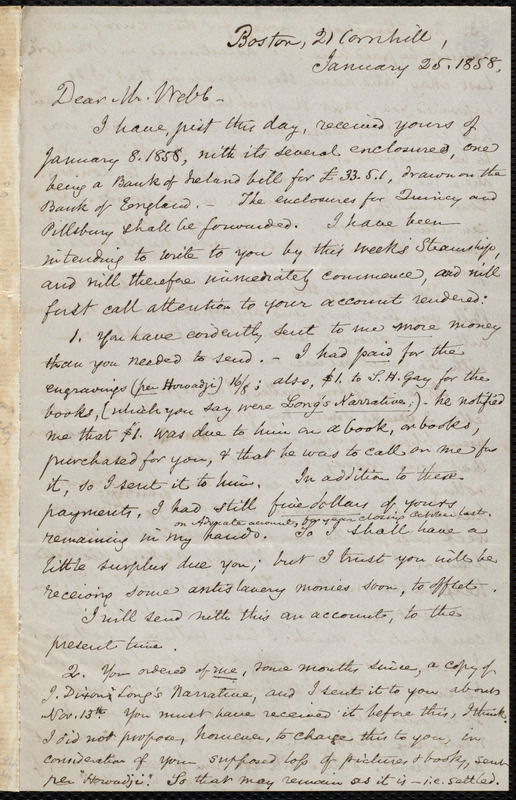 Boston, 21 Cornhill,
January 25. 1858.
Dear Mr. Webb—
I have, just this day, received yours of
January 8. 1858, with its several enclosures, one
being a Bank of Ireland bill for £33.5.1, drawn on the
Bank of England. — The enclosures for Quincy and
Pillsbury shall be forwarded. I have been
intending to write to you by this week's Steamship,
and will therefore immediately commence, and will
first call attention to your account rendered:
1. You have evidently sent to me more money
than you needed to send. — I had paid for the
engravings (per Howadji) 16/8; also, $1. to S. H. Gay for the
books, (which you say were Long's Narrative;) — he notified
me that $1. was due to him on a book, or books,
purchased for you, & that he was to call on me for
it, so I sent it to him. In addition to these
payments, I had still five dollars of yours
on Advocate account, for year closing last
remaining in my hands. So I shall have a
little surplus due you; but I trust you will be
receiving some antislavery monies soon, to offset.
I will send with this an account, to the
present time.
2. You ordered of me, some months since, a copy of
J. Dixon Long's Narrative, and I sent it to you about
Nov. 13th. You must have received it before this, I think.
I did not propose, however, to charge this to you, in
consideration of your supposed loss of pictures & books, sent
per "Howadji". So that may remain as it is — i.e. settled.